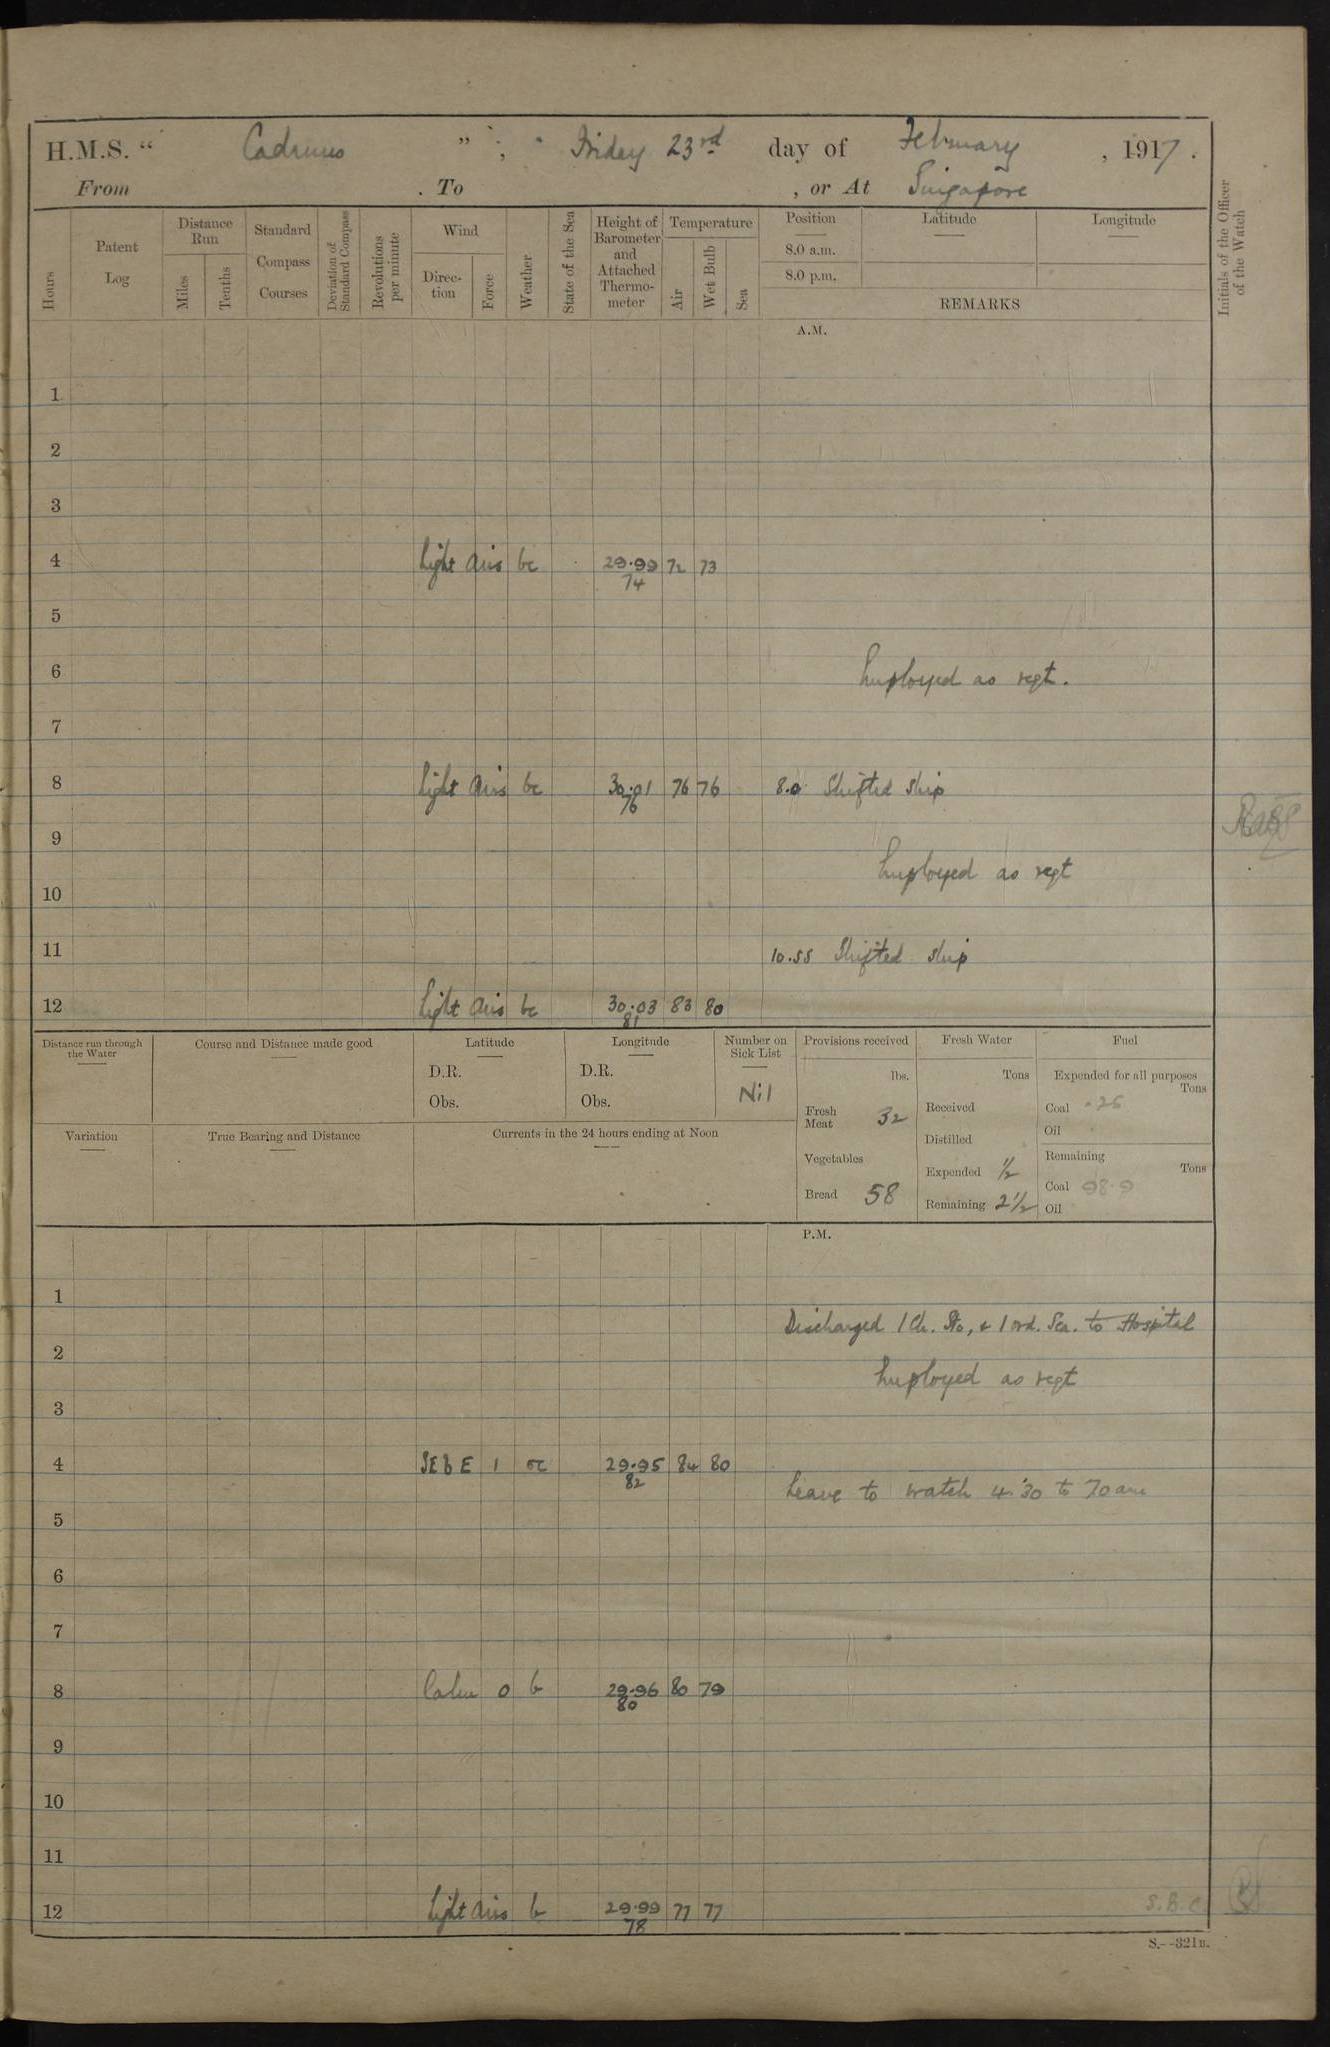 H.M.S. " Cadmus " ; Friday 23rd day of February, 1917.
From . To , or At Singapore
Hours
Patent Log
Distance Run
Miles
Tenths
Standard Compass Courses
Deviation of Standard Compass
Revolutions per minute
Wind
Direction
Force
Weather
State of the Sea
Height of Barometer and Attached Thermometer
Temperature
Air
Wet Bulb
Sea
Position
8.0 a.m.
8.0 p.m.
Latitude
Longitude
REMARKS
Initials of the Officer of the Watch
A.M.
1
2
3
4 Light airs bc 29.99 72 73
74
5
6 Employed as reqt.
7
8 Light airs bc 30.01 76 76 8.0 Shifted ship
76
9
Employed as reqt
10
11 10.55 Shifted ship
12 Light airs bc 30.03 83 80
81
Distance run through the Water
Course and Distance made good
Latitude
D.R.
Obs.
Longitude
D.R.
Obs.
Number on Sick List
Nil
Variation
True Bearing and Distance
Currents in the 24 hours ending at Noon
Provisions received
lbs.
Fresh Meat 32
Vegetables
Bread 58
Fresh Water
Tons
Received
Distilled
Expended 1/2
Remaining 2 1/2
Fuel
Expended for all purposes
Tons
Coal .25
Oil
Remaining
Tons
Coal 98.9
Oil
P.M.
1
Discharged 1 Ch. Sto, & 1 ord. Sea. to Hospital
2
Employed as reqt
3
4 SE b E 1 oc 29.95 84 80
82
Leave to watch 4.30 to 7.0 am
5
6
7
8 Calm 0 b 29.96 80 79
80
9
10
11
12 Light airs b 29.99 77 77 S.B.C.
78
S.--321B.